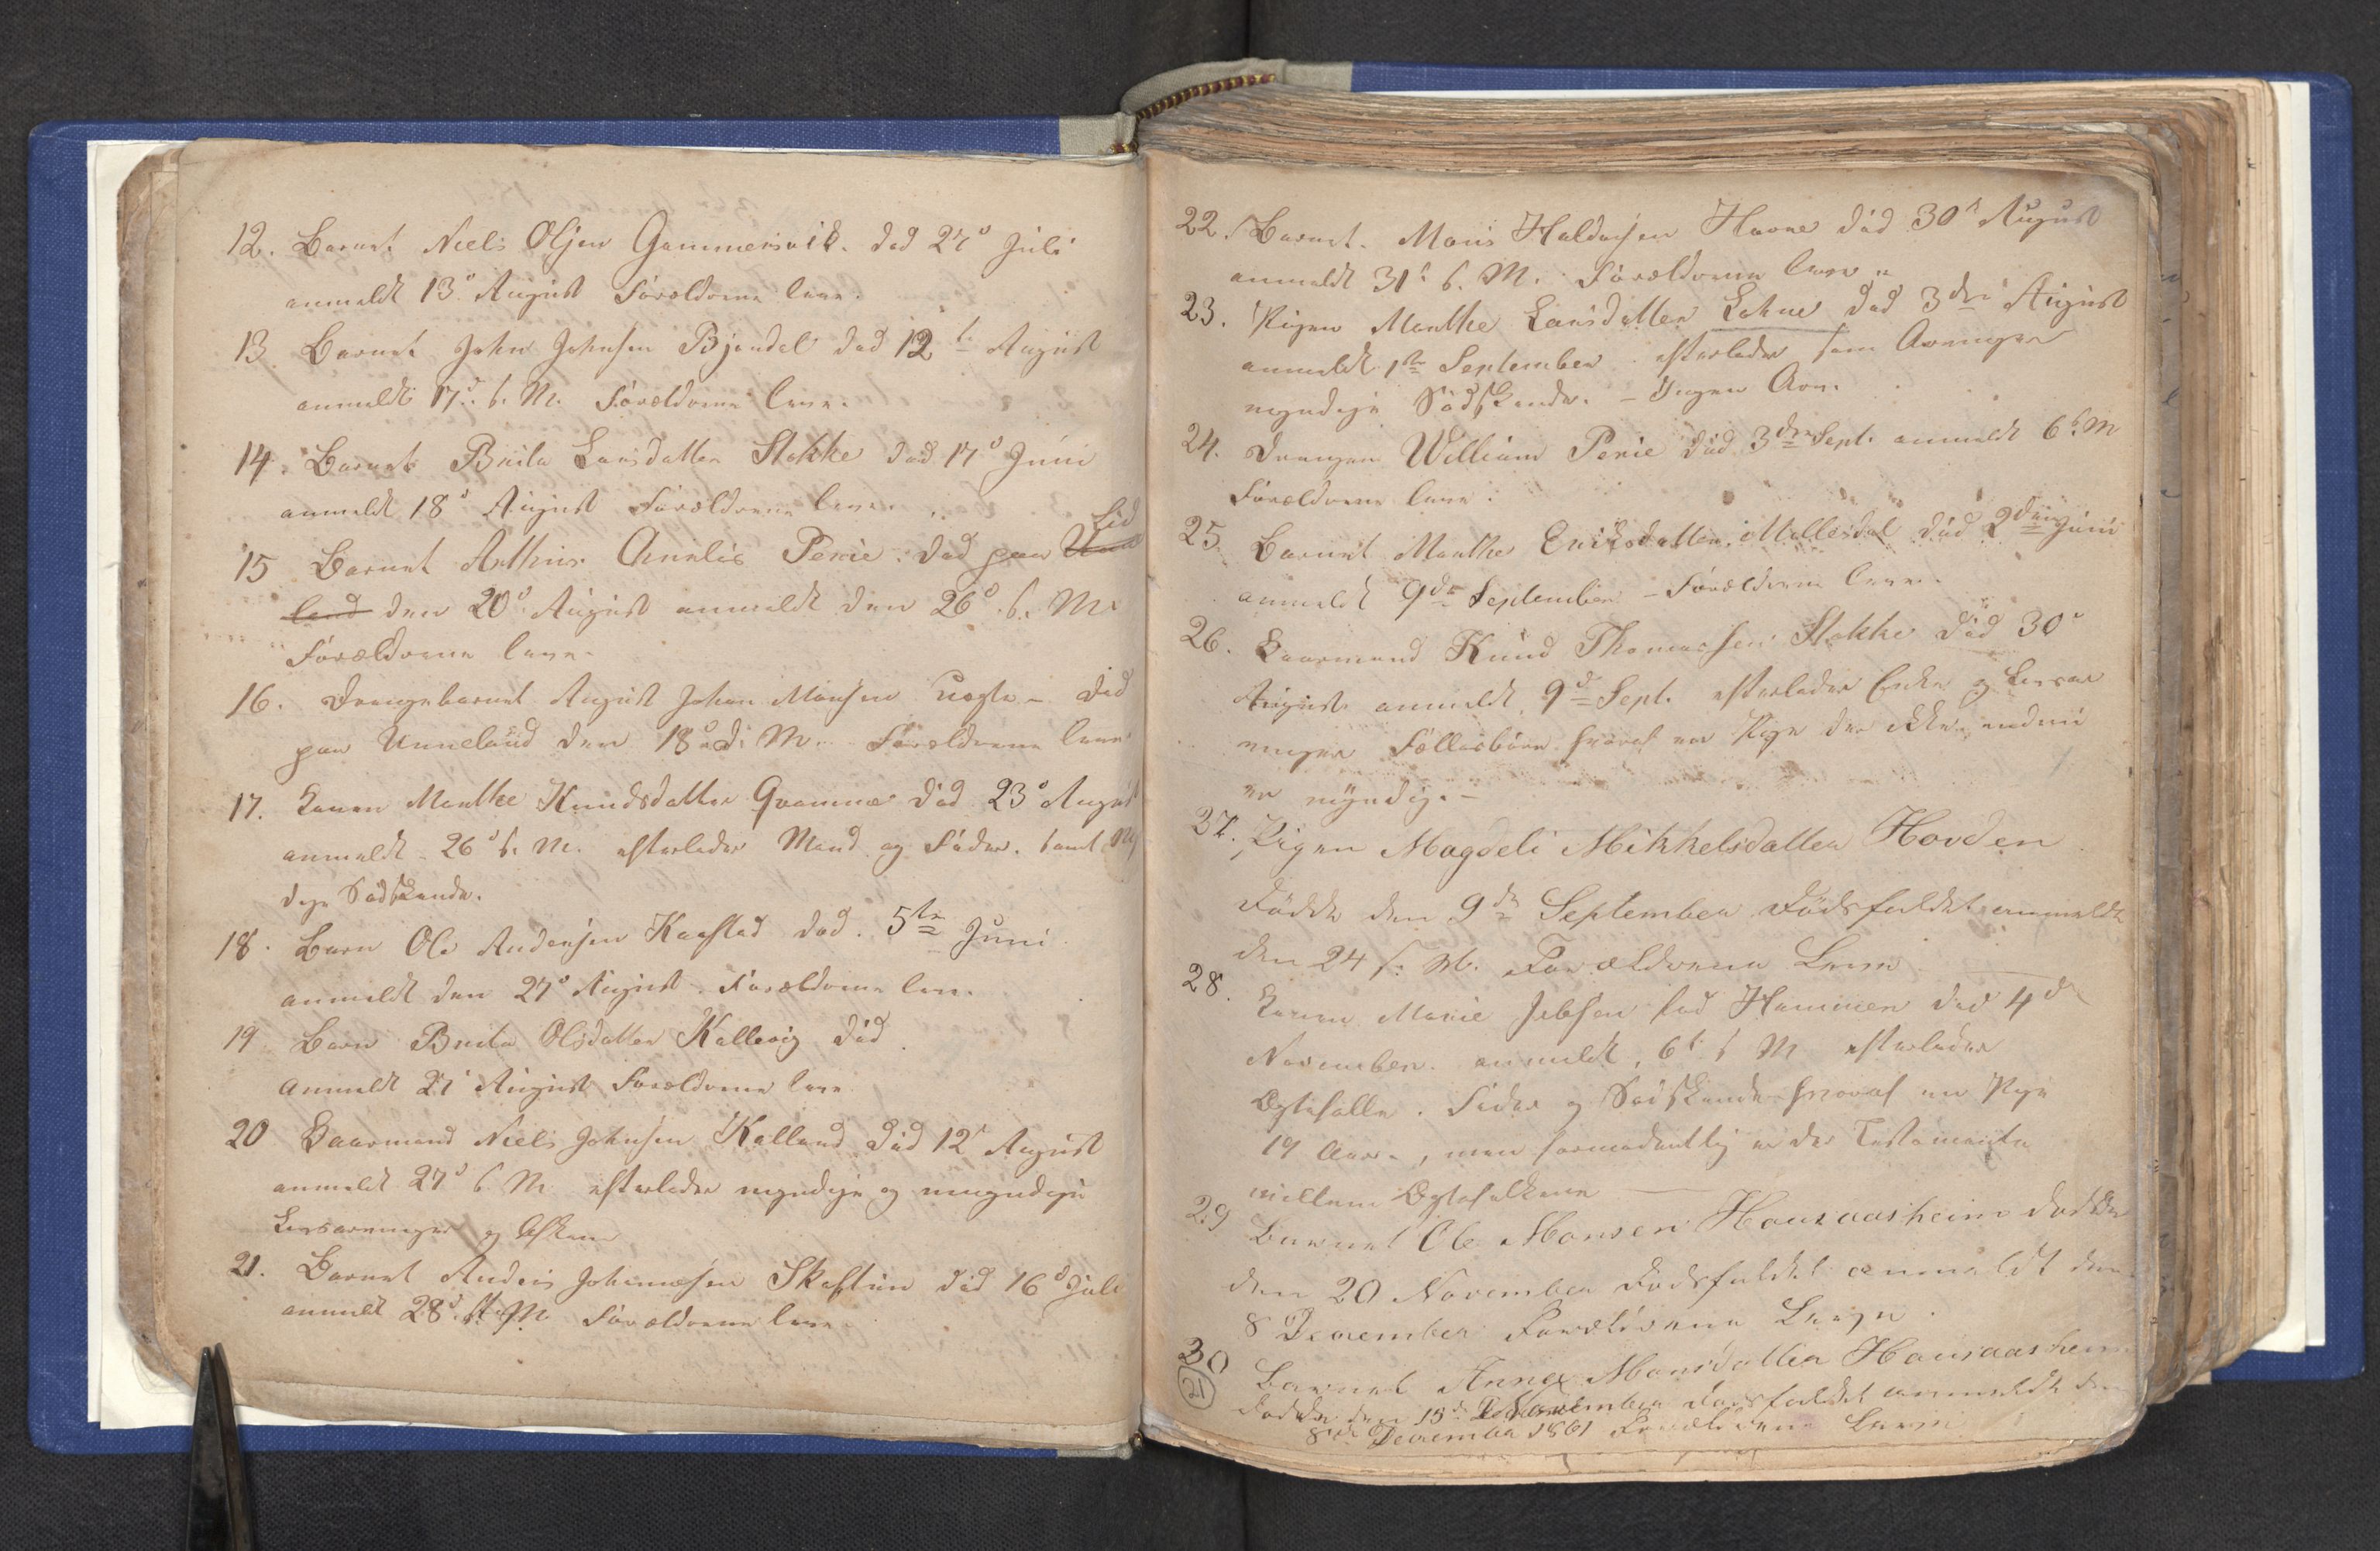 12. Barnet Niels Olsen Gammersvik. død 27d Juli
anmeldt 13d August Forældrene leve.
13. Barnet John Johnsen Bjendel død 12te August
anmeldt 17d s. M. Forældrene leve.
14. Barnet Brita Larsdatter Stokke død 17d Juni
anmeldt 18d August Forældrene leve.
15 Barnet Arthur Perie. død paa Lid
land den 20d August anmeldt den 26d s. M.
Forældrene leve.
16. Drengebarnet August Johan Monsen – død
paa Unneland den 18d d. M. Forældrene leve
17. Konen Marthe Knudsdatter Qvamme død 23d August
anmeldt 26d s. M. efterlader Mand og Fader. samt My
dige Sødskende.
18. Barn Ole Andersen Kaastad død. 5te Juni
anmeldt den 27d August. Forældrene leve.
19 Barn Brita Olsdatter Kallevig død
anmeldt 27 August Forældrene leve
20 Gaarmand Niels Johnsen Kalland død 12d August
anmeldt 27d s. M efterlader myndige og umyndige
Livsarvinger og
21. Barnet Anders Johannesen Skaftun død 16d Juli
anmeldt 28d M Forældrene leve
22. Barnet. Mons Haldorsen Havre død 30d August
anmeldt 31d s. M. Forældrene leve
23. Pigen Marthe Larsdatter Lohne død 3die August
anmeldt 1te September. efterlader som Arvinger
myndige Sødskende. – Ingen Arv.
24. Drengen William Perie død 3die Sept. anmeldt 6 s. M
Forældrene leve.
25. Barnet Marthe Eriksdatter Møllesdal død 2den Juni
anmeldt 9de September – Forældrene leve.
26. Gaarmand Knud Thomassen Stokke død 30d
August anmeldt 9de Sept. efterlader Enke og Livsar
vinger Fællesbørn hvoraf en Pige der ikke endnu
er myndig. –
27. Pigen Magdeli Mikkelsdatter Hovden
Dødde den 9de September Dødsfaldet anmeldt
den 24 s. M. Forældrene Leve
28. Konen Marie Jebsen fød Hammer død 4de
November. anmeldt 6 s M efterlader
Ægtefælle. Fader og Sødskende hvoraf en Pige
19 Aar, men formodentlig er der Testamente
mellem Ægtefolkene
29 Barnet Ole Monsen Haugaasheim dødde
den 20 November Dødsfaldet anmeldt den
8 December Forældrene Lever.
30 Barnet Anna Monsdatter Haugaasheim
21
Dødde den 15de November Dødsfaldet anmeldt den
8de December 1861 Forældrene Lever